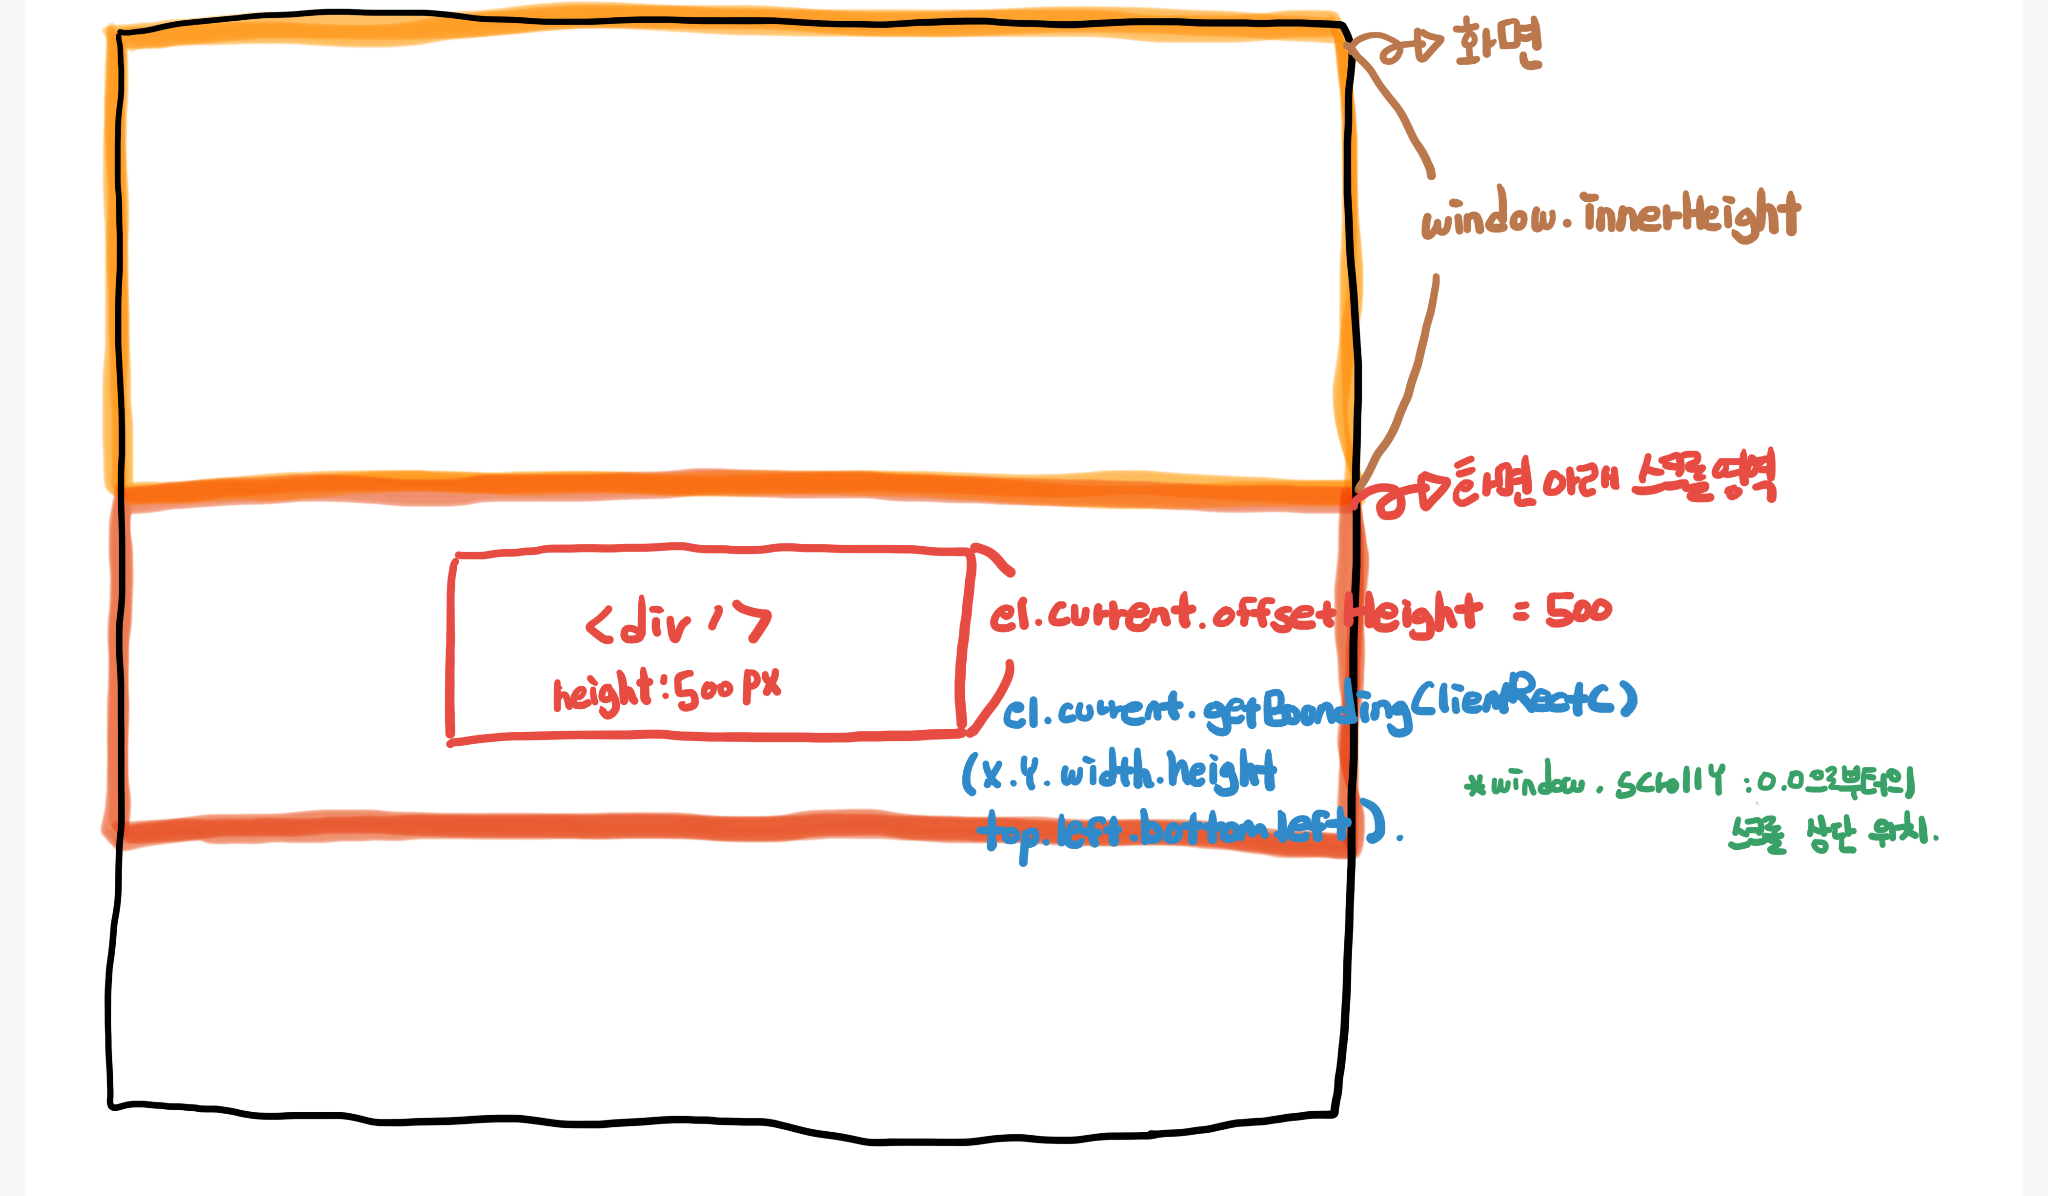 화면
window.innerHeight
화면 아래 스크롤 영역
<div />
height:500px
el.current.offsetHeight = 500
el.current.getBonding(ClientRect()
(x.y.width.height
top.left.bottom.left).
*window.scrollY : 0.0으로부터의
스크롤 상단 위치.